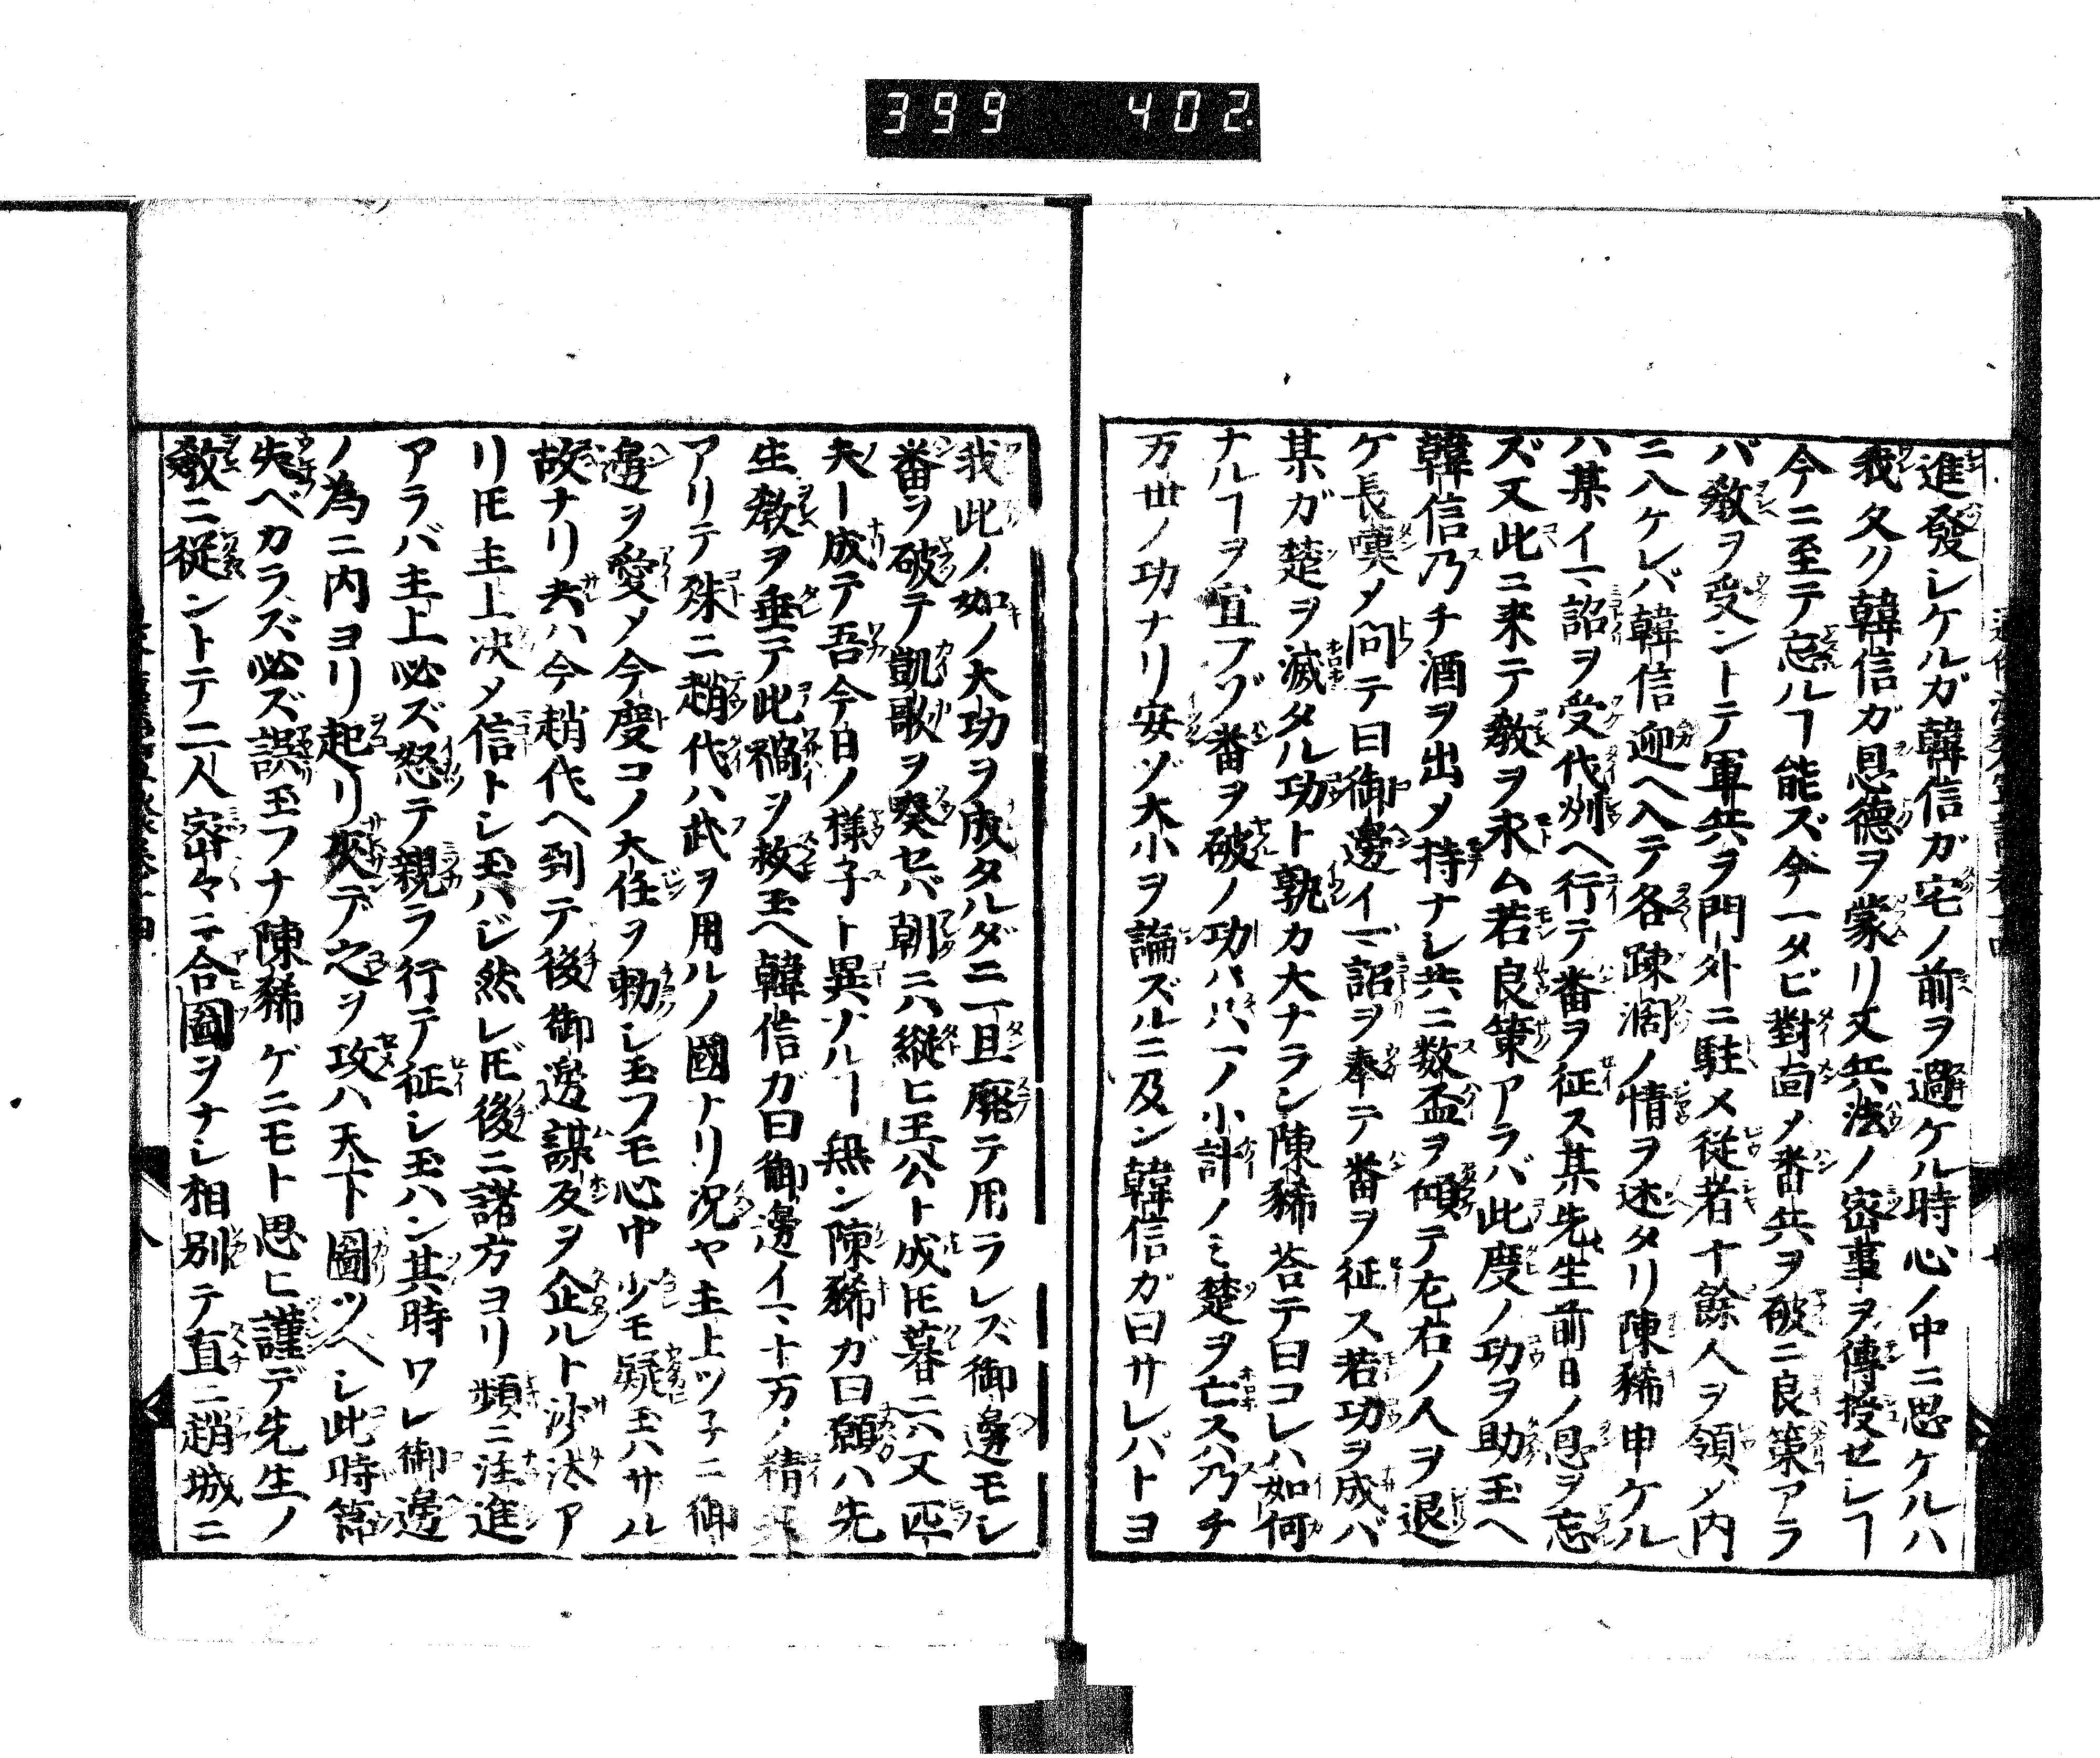 399 402.
進發シケルガ韓信ガ宅ノ前ヲ過ケル時心ノ中ニ思ケルハ
我久ク韓信ガ恩德ヲ蒙リ又兵法ノ密事ヲ傳授セシヿ
今ニ至テ忘ルヿ能ズ今一タビ對面メ番兵ヲ破ニ良策アラ
バ教ヲ受ントテ軍兵ヲ門外ニ駐メ従者十餘人ヲ領メ内
ニ入ケレバ韓信迎ヘ入テ各踈濶ノ情ヲ述タリ陳豨申ケル
ハ某イマ詔ヲ受代州ヘ行テ番ヲ征ス某先生前日ノ恩ヲ忘
ズ又此ニ来テ教ヲ求ム若良策アラバ此度ノ功ヲ助玉ヘ
韓信乃チ酒ヲ出メ持ナシ共ニ数盃ヲ傾テ左右ノ人ヲ退
ケ長嘆メ問テ曰御邊イマ詔ヲ奉テ番ヲ征ス若功ヲ成バ
某ガ楚ヲ滅タル功ト孰カ大ナラン陳豨荅テ曰コレハ如何
ナルヿヲ宣フゾ番ヲ破ノ功ハ只一ノ小計ノミ楚ヲ亡スハ乃チ
万世ノ功ナリ安ゾ大小ヲ論ズルニ及ン韓信ガ曰サレバトヨ
我此ノ如ノ大功ヲ成タルダニ一旦廢テ用ラレズ御邊モシ
番ヲ破テ凱歌ヲ奏セバ朝ニハ縦ヒ王公ト成𪜈暮ニハ又匹
夫ト成テ吾今日ノ様子ト異ナルヿ無ン陳豨ガ曰願ハ先
生教ヲ垂テ此禍ヲ救玉ヘ韓信ガ曰御邊イマ十万ノ精兵
アリテ殊ニ趙代ハ武ヲ用ルノ國ナリ况ヤ主上ツ子ニ御
邊ヲ愛メ今度コノ大任ヲ勅シ玉フモ心中少モ疑玉ハサル
故ナリ夫ハ今趙代ヘ到テ後御邊謀反ヲ企ルト沙汰ア
リ𪜈主上决メ信トシ玉ハジ然レ𪜈後ニ諸方ヨリ頻ニ注進
アラバ主上必ズ怒テ親ラ行テ征シ玉ハン其時ワレ御邊
ノ為ニ内ヨリ起リ夾デ之ヲ攻ハ天下圖ツヘシ此時節
失ベカラズ必ズ誤玉フナ陳豨ゲニモト思ヒ謹デ先生ノ
敎ニ従ントテ二人密々ニ合圖ヲナシ相別テ直ニ趙城ニ